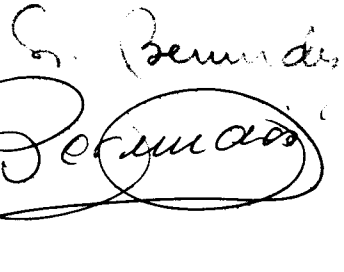 G. Bermudes
Bermudes